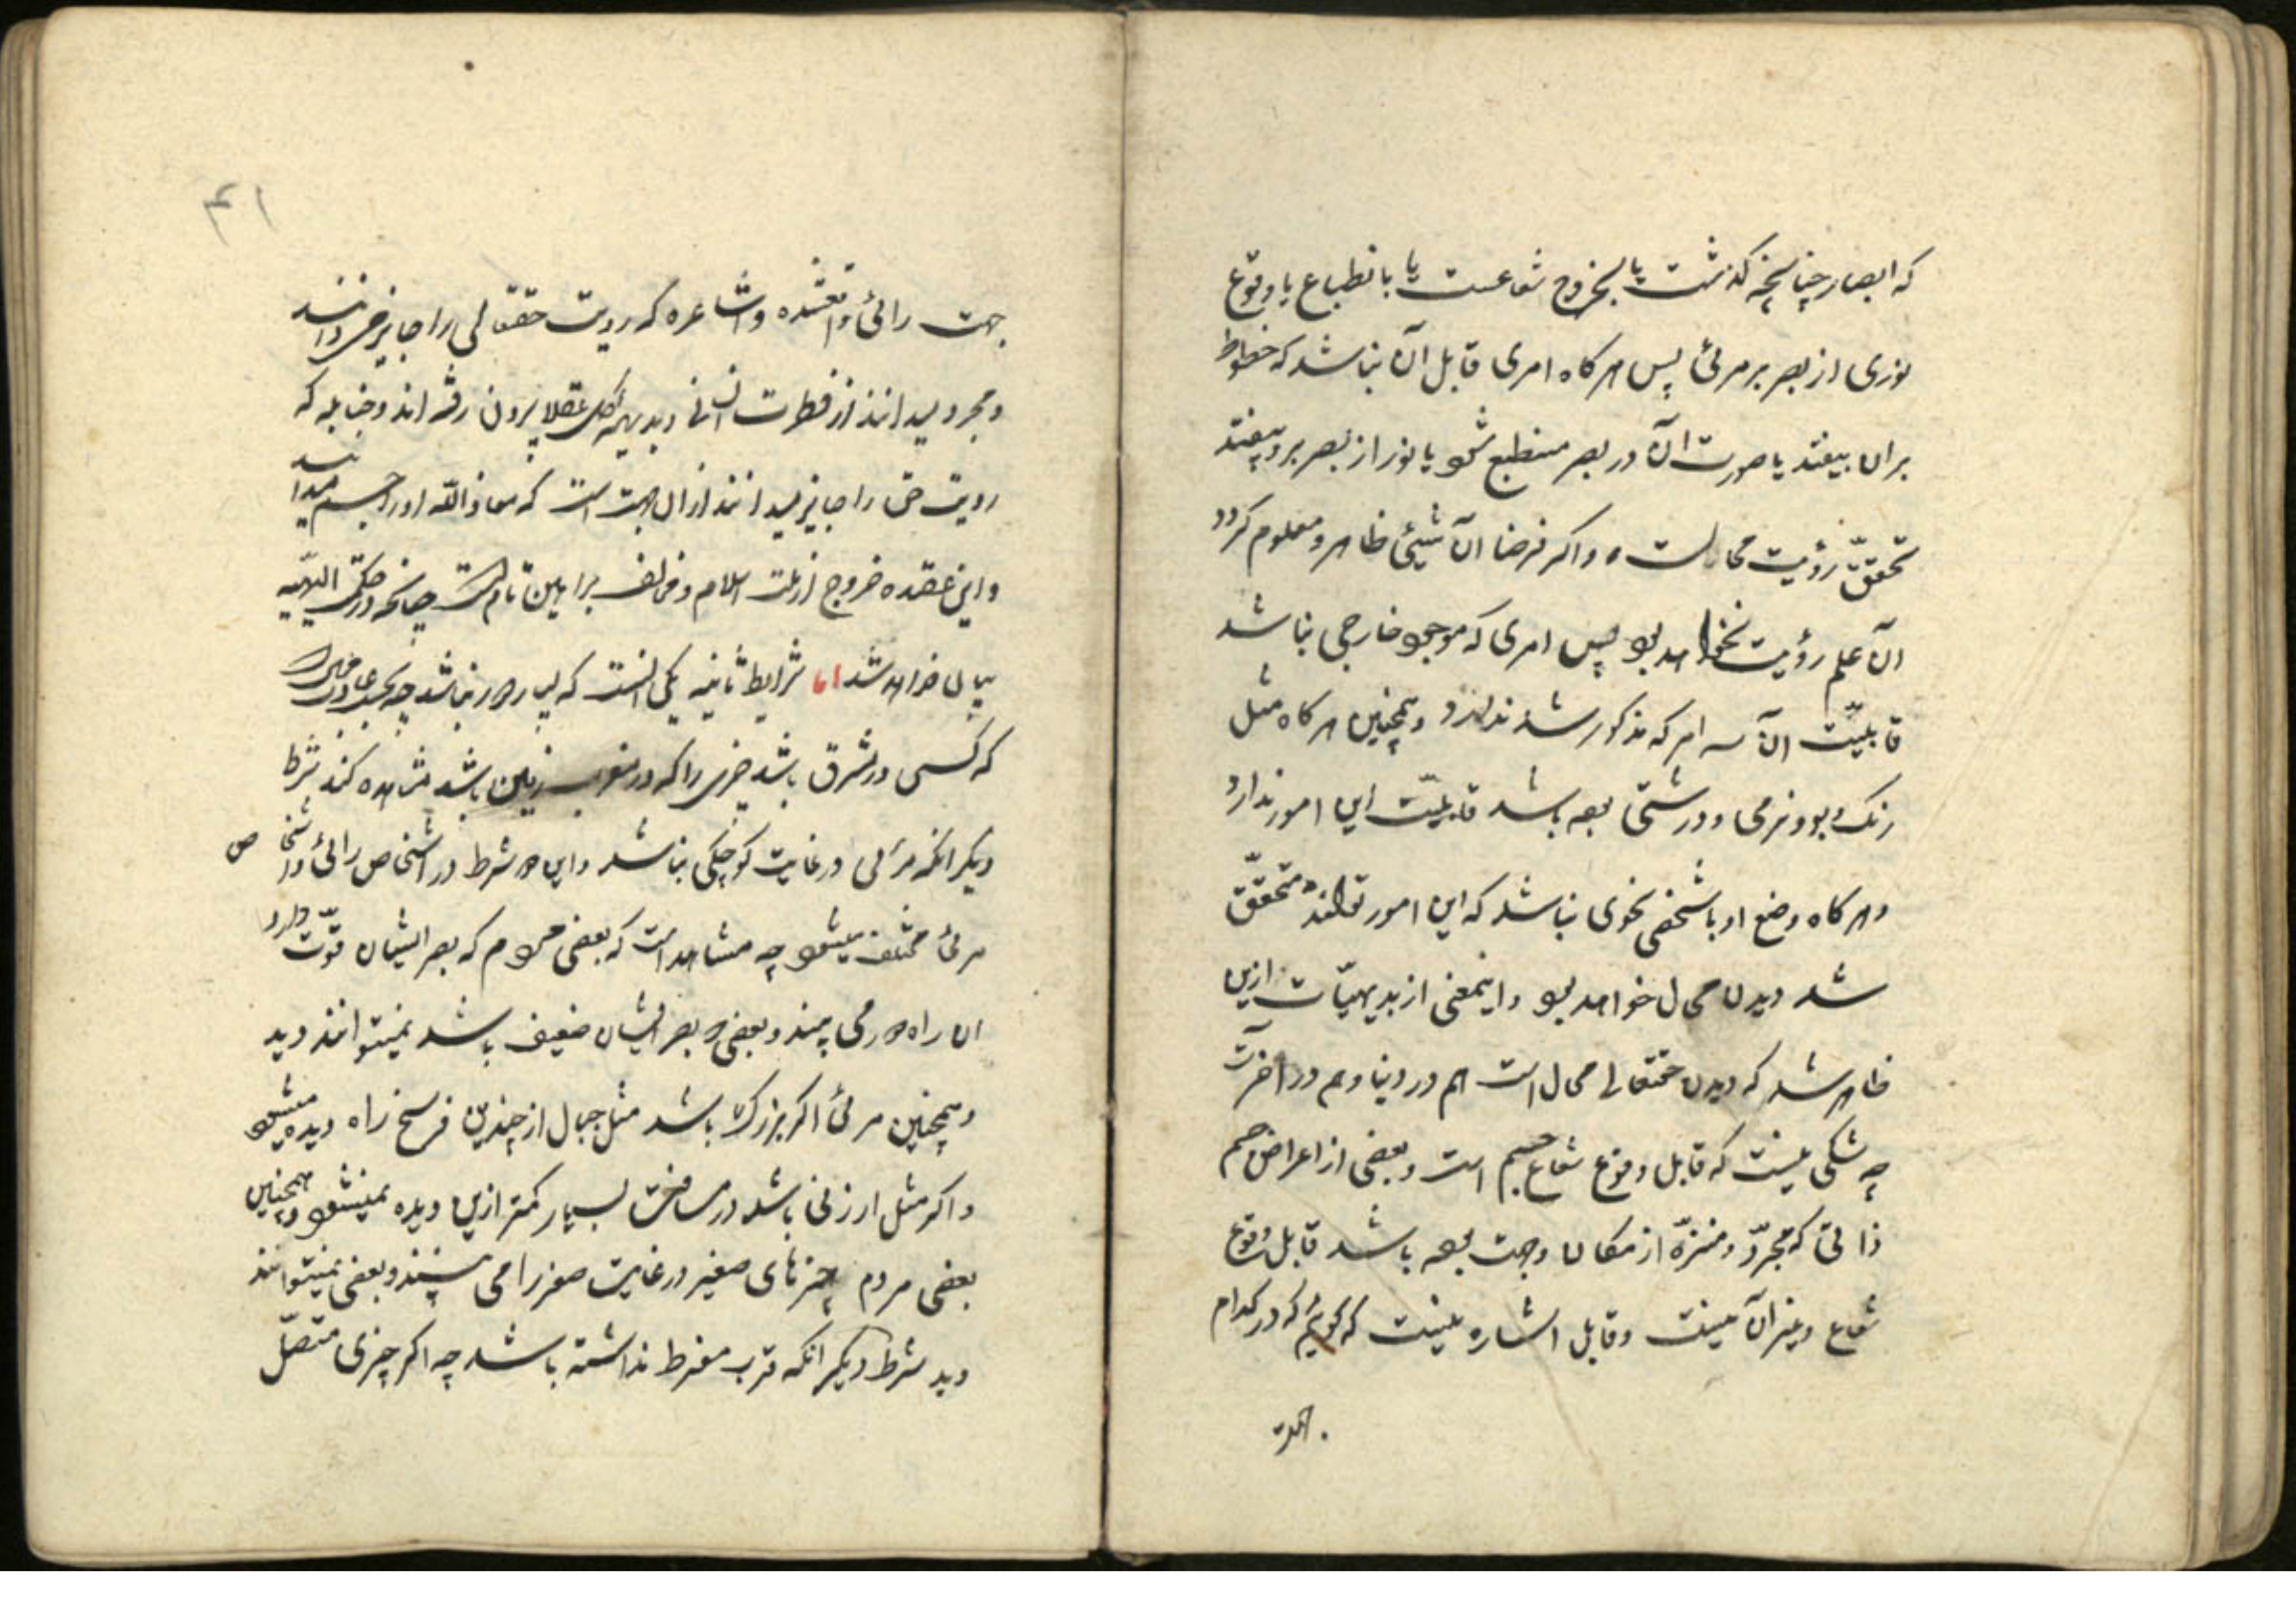 که ابصار چنانچه گذشت یا بخروج شعاعست یا بانطباع یا وقوع
نوری از بصر بر مرئی پس هرکاه امری قابل آن نباشد که خطوط
بران بیفتد یا صورت آن در بصر منطبع شود یا نور از بصر برو بیفتد
تحقق رؤیت محالست و اکر فرضا آن شیئ ظاهر و معلوم کردد
آن علم رؤیت نخواهد بود پس امری که موجود خارجی نباشد
قابلیّت آن سه امر که مذکور شد ندارد و همچنین هرکاه مثل
رنک و بو و نرمی و درشتی بوده باشد قابلیّت این امور ندارد
و هرکاه وضع او با شخص نحوی نباشد که این امور تواند متحقق
شد دیدن محال خواهد بود و اینمعنی از بدیهیّات ازین
ظاهر شد که دیدن حقتعالی محال است هم در دنیا و هم در آخرت
چه شکی نیست که قابل وقوع شعاع جسم است و بعضی از اعراض جسم
ذاتی که مجرّد و منزّه از مکان و جهت بوده باشد قابل وقوع
شعاع و غیر آن نیست و قابل اشاره نیست که کوئیم که در کدام
جهت
۴۱
جهت رائی واقعشده و اشاعره که رویت حقتعالی را جایز میدانند
و مجرد میدانند از فطرت انسانی و بدیهه کل عقلا بیرون رفته اند و حنابله که
رویت حق را جایز میدانند از ان جهت است که معاذ الله او را جسم میدانند
و این عقیده خروج از ملت اسلام و مخالف براهین تامه است چنانچه در حکمت الهیه
بیان خواهد شد اما شرایط ثانیه یکی انست که بسیار دور نباشد چه بحسب عادت محال است
که کسی در مشرق باشد چیزی را که در مغرب زمین باشد مشاهده کند شرط
دیکر انکه مرئی در غایت کوچکی نباشد و این دو شرط در اشخاص رائی و اشخاص
مرئی مختلف میشود چه مشاهد است که بعضی مردم که بصر ایشان قوّت دارد
از راه دور می بینند و بعضی که بصر ایشان ضعیف باشد نمیتوانند دید
و همچنین مرئی اکر بزرک باشد مثل جبال از چندین فرسخ راه دیده میشود
و اکر مثل ارزنی باشد در مسافت بسیار کمتر ازین دیده نمیشود و همچنین
بعضی مردم چیزهای صغیر در غایت صغر را می بینند و بعضی نمیتوانند
دید شرط دیکر انکه قرب مفرط نداشته باشد چه اکر چیزی متصّل